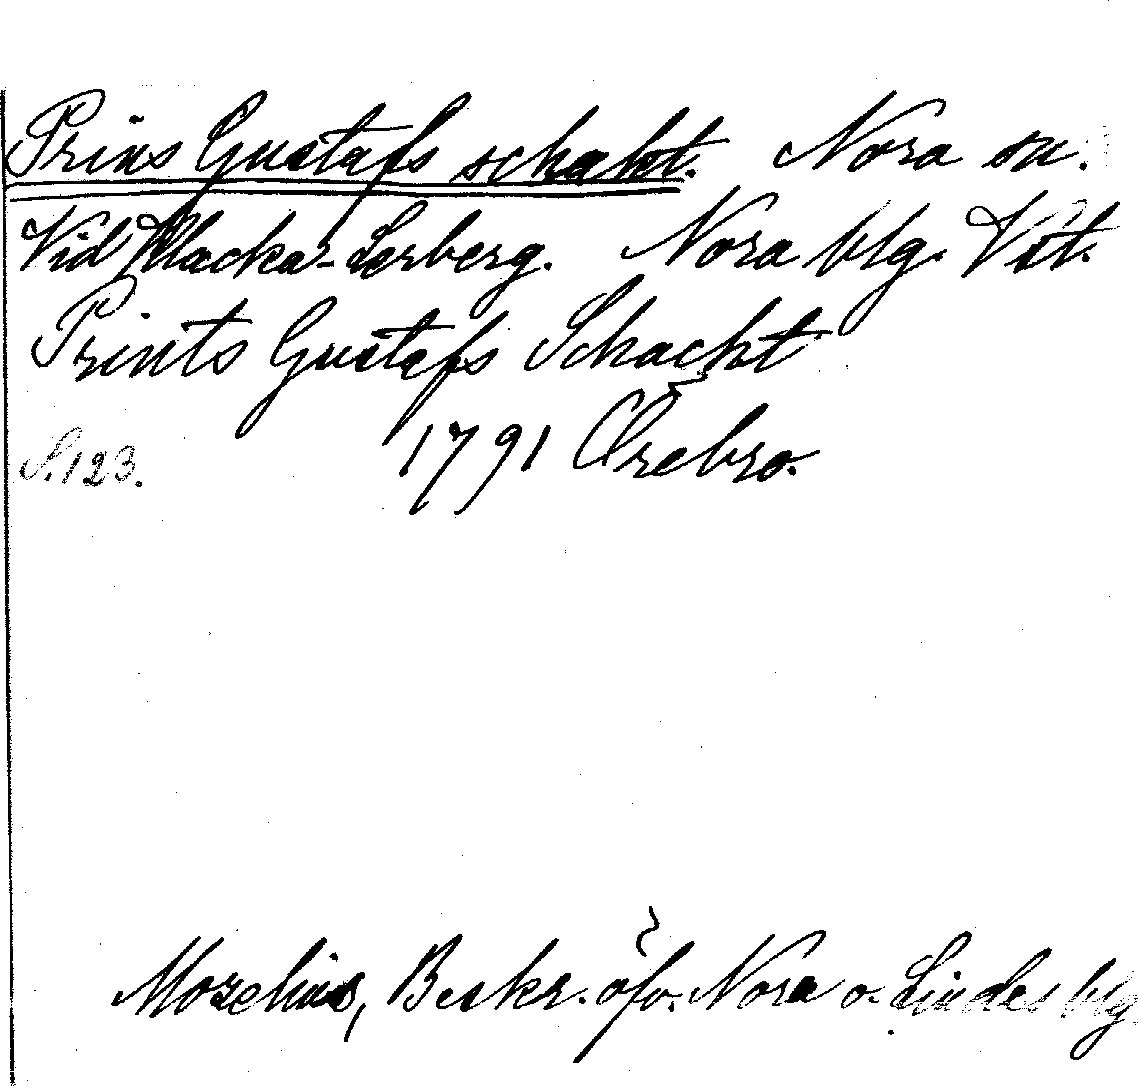 Prins Gustafs schakt. Nora sn.
Vid Klacka-Lerberg. Nora blg. Vstm.
Prints Gustafs Schacht
S. 123. 1791 Örebro.
Morelius, Beskr. öfv. Nora o. Lindes blg.